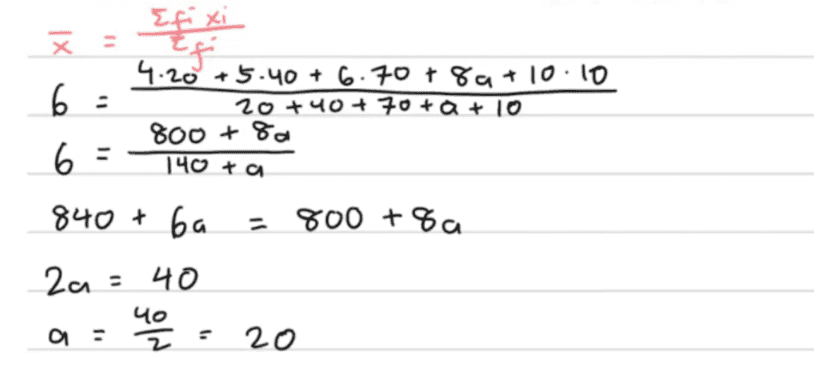 x̄ = Σfi xi / Σfi
6 = (4·20 + 5·40 + 6·70 + 8a + 10·10) / (20 + 40 + 70 + a + 10)
6 = (800 + 8a) / (140 + a)
840 + 6a = 800 + 8a
2a = 40
a = 40/2 = 20